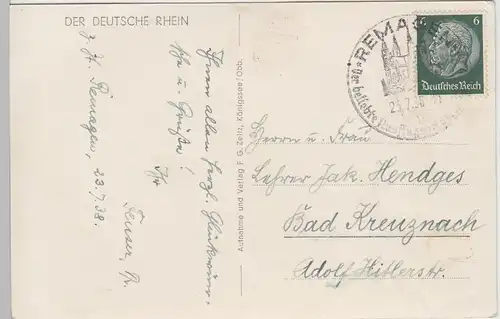 DER DEUTSCHE RHEIN
z. Zt. Remagen, 23.7.38.
Ihnen allen herzl. Glückwün-
sche u. Grüße!
Ihr
Aufnahme und Verlag F. G. Zeitz, Königssee/Obb.
REMAGEN
der beliebte
6
Deutsches Reich
Herrn u. Frau
Lehrer Jak. Hendges
Bad Kreuznach
Adolf Hitlerstr.